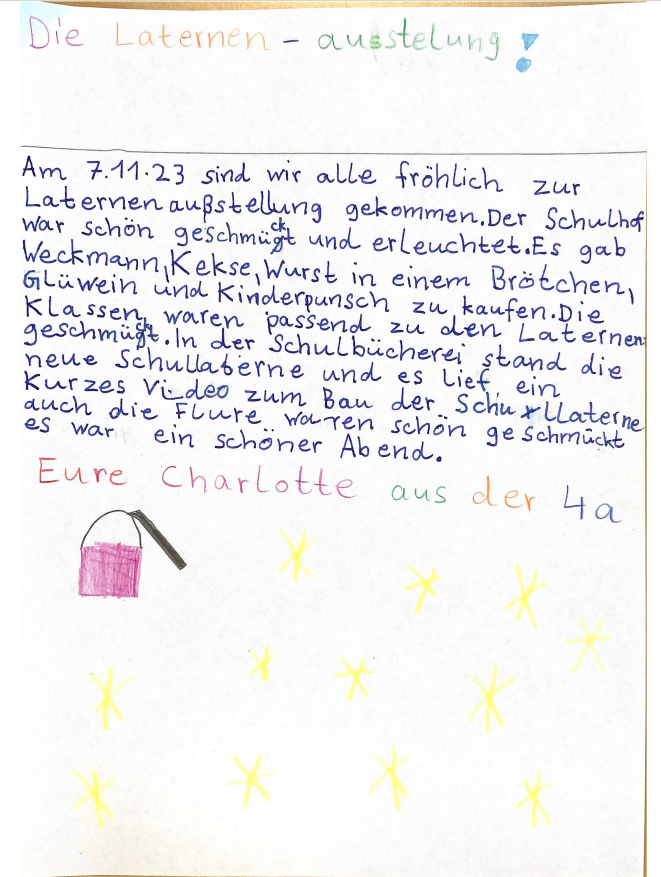 Die Laternen - ausstelung!
Am 7.11.23 sind wir alle fröhlich zur
Laternenaußstellung gekommen. Der Schulhof
war schön geschmückt und erleuchtet. Es gab
Weckmann, Kekse, Wurst in einem Brötchen,
Glüwein und Kinderpunsch zu kaufen. Die
Klassen waren passend zu den Laternen
geschmückt. In der Schulbücherei stand die
neue Schullaterne und es lief ein
Kurzes Video zum Bau der Schullaterne
auch die Flure waren schön geschmückt
es war ein schöner Abend.
Eure Charlotte aus der 4a